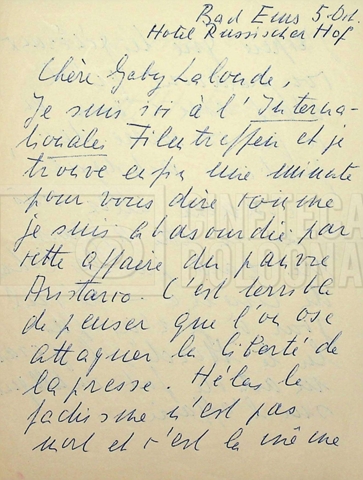 Bad Ems 5 Oct.
Hotel Russischer Hof
Chère Gaby Lalonde,
Je suis ici à l'Interna-
tionales Filmtreffen et je
trouve enfin une minute
pour vous dire comme
je suis abasourdie par
cette affaire du pauvre
Aristarco. C'est terrible
de penser que l'on ose
attaquer la liberté de
la presse. Hélas le
fachisme n'est pas
mort et c'est la même
CINETECA
BOLOGNA